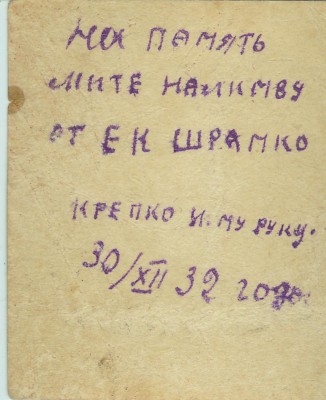 на ПАМЯТЬ
МИТЕ НАЛИМВУ
ОТ ЕК ШРАМКО
КРЕПКО И.МУ РУКУ.
30/XII 32 года.